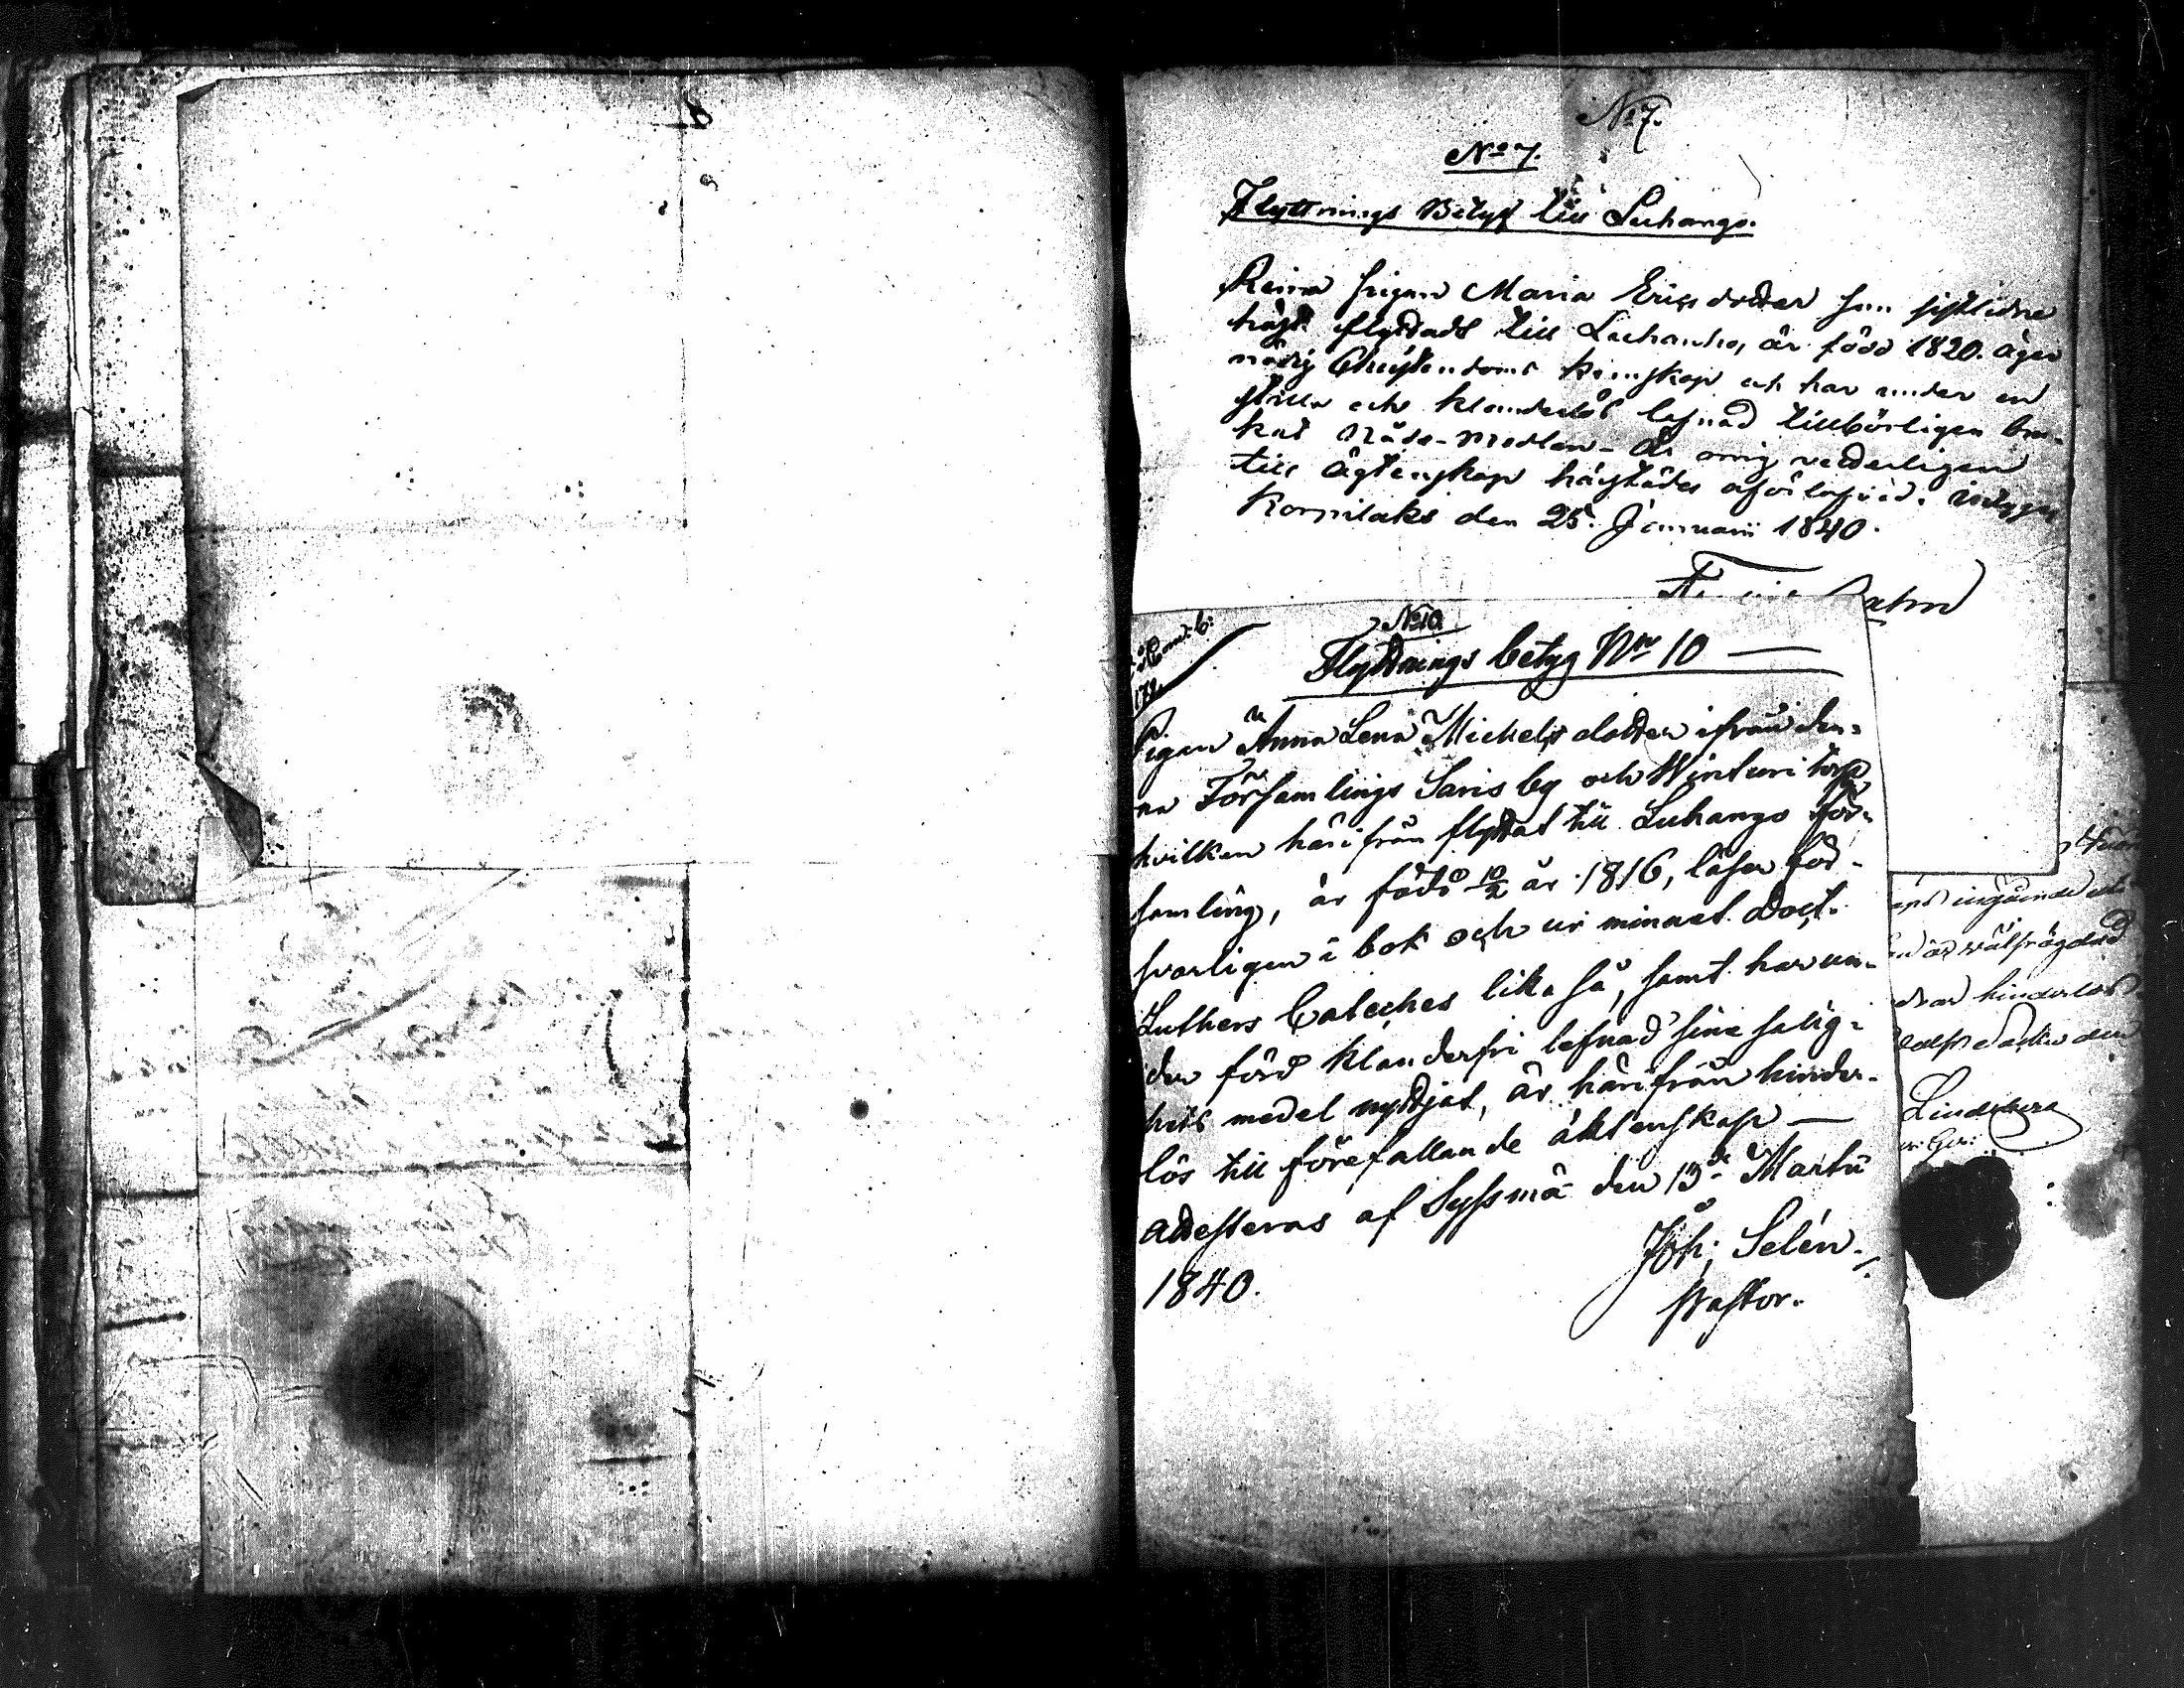 No 7.
No 7.
Flyttnings Betyg till Luhango.
Pigan Maria Ericsdotter som sistledne
höst flyttadt till Luhanko, är född 1820. äger
nödig Christendoms kunskap och har under en
stilla och klanderlös lefnad tillbörligen bru-
kat Nåde-Medlen - Är mig veterligen
till ägtenskap
Korpilaks den 25. Januarii 1840.
No 10.
Flyttnings betyg Nro 10
Pigan Anna Lena Michelsdotter ifrån den-
na Församlings Saris by och Wirturi torp
hvilken härifrån flyttat till Luhango för-
samling, är född 10/2 år 1816, läser för-
svarligen i bok och ur minnet Doct.
Luthers Cateches lika så, samt har un-
der förd klanderfri lefnad sine salig-
hets medel nyttjat, är härifrån hinder-
lös till förefallande äktenskap
attesteras af Syssmä den 13de Martii
1840.
Joh: Selén.
pastor.
ingående
är välfrägdad
hinderlös
den
Lindeberg